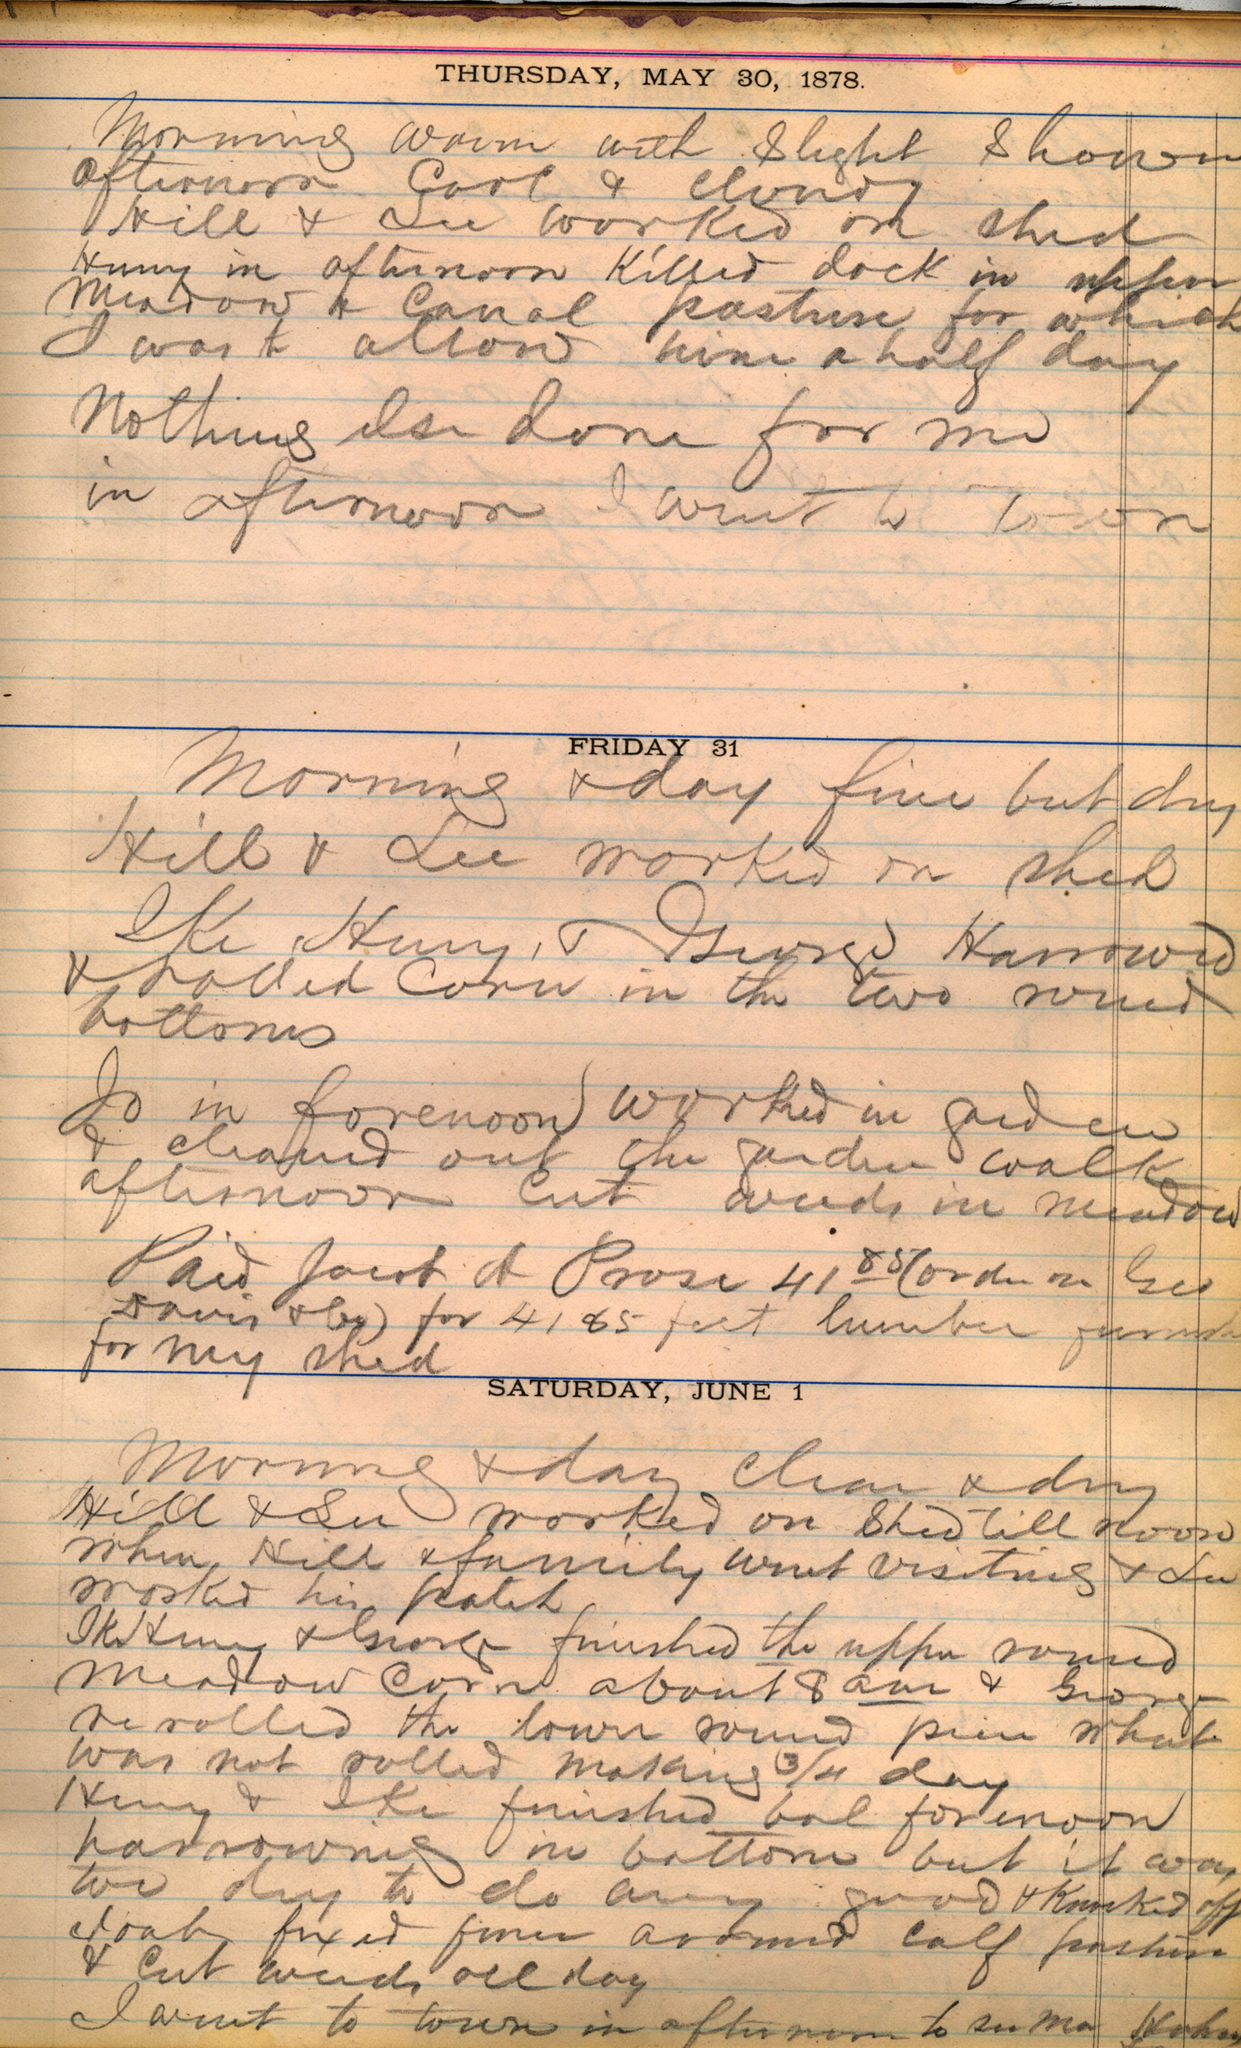 THURSDAY, MAY 30, 1878.
Morning warm with slight Shower
afternoon Cool & cloudy
Hill & Lee worked on shed
Henry in afternoon Killed dock in upper
Meadow & Canal pasture for which
I was to allow him a half day
Nothing else done for me
in afternoon I went to Town
FRIDAY 31
Morning & day fine but dry
Hill & Lee worked on shed
Ike, Henry, & George Harrowed
& rolled Corn in the two round
bottoms
Jo in forenoon worked in garden
& cleaned out the garden walks
afternoon Cut weeds in meadow
Paid Jacob A Prose 41 85 (order on Geo
Davis & Co) for 4185 feet lumber
for my shed
SATURDAY, JUNE 1
Morning & day Clear & dry
Hill & Lee worked on Shed till noon
when Hill & family went visiting & Lee
worked his patch
Ike Henry & George finished the upper round
Meadow Corn about 8 am & George
rerolled the lower round piece what
was not rolled making 3/4 day
Henry & Ike finished bal forenoon
harrowing in bottom but it was
too dry to do any good & Knocked off
fixed fence around Calf pasture
& Cut weeds all day
I went to town in afternoon to see